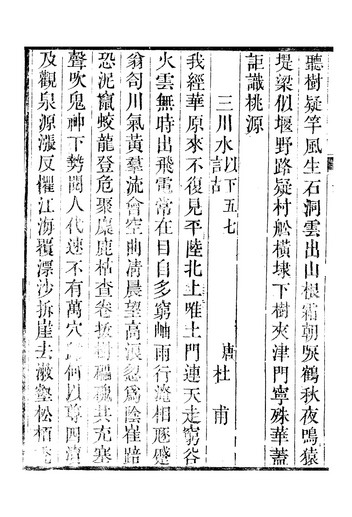 聽樹疑竽風生石洞雲出山根霜朝唳鶴秋夜鳴猿
堤梁似堰野路疑村舩橫埭下樹夾津門寧殊華蓋
詎識桃源
三川水以下五七言古 唐杜甫
我經華原來不復見平陸北上唯土門連天走窮谷
火雲無時出飛電常在目自多窮岫雨行潦相豗蹙
蓊匌川氣黃羣流會空曲清晨望高浪忽爲陰崖踣
恐泥竄蛟龍登危聚麋鹿枯查卷拔樹磈共充塞
聲吹鬼神下勢閱人代速不有萬穴何以尊四瀆
及觀泉源漲反懼江海覆漂沙拆崖去漱壑松柏